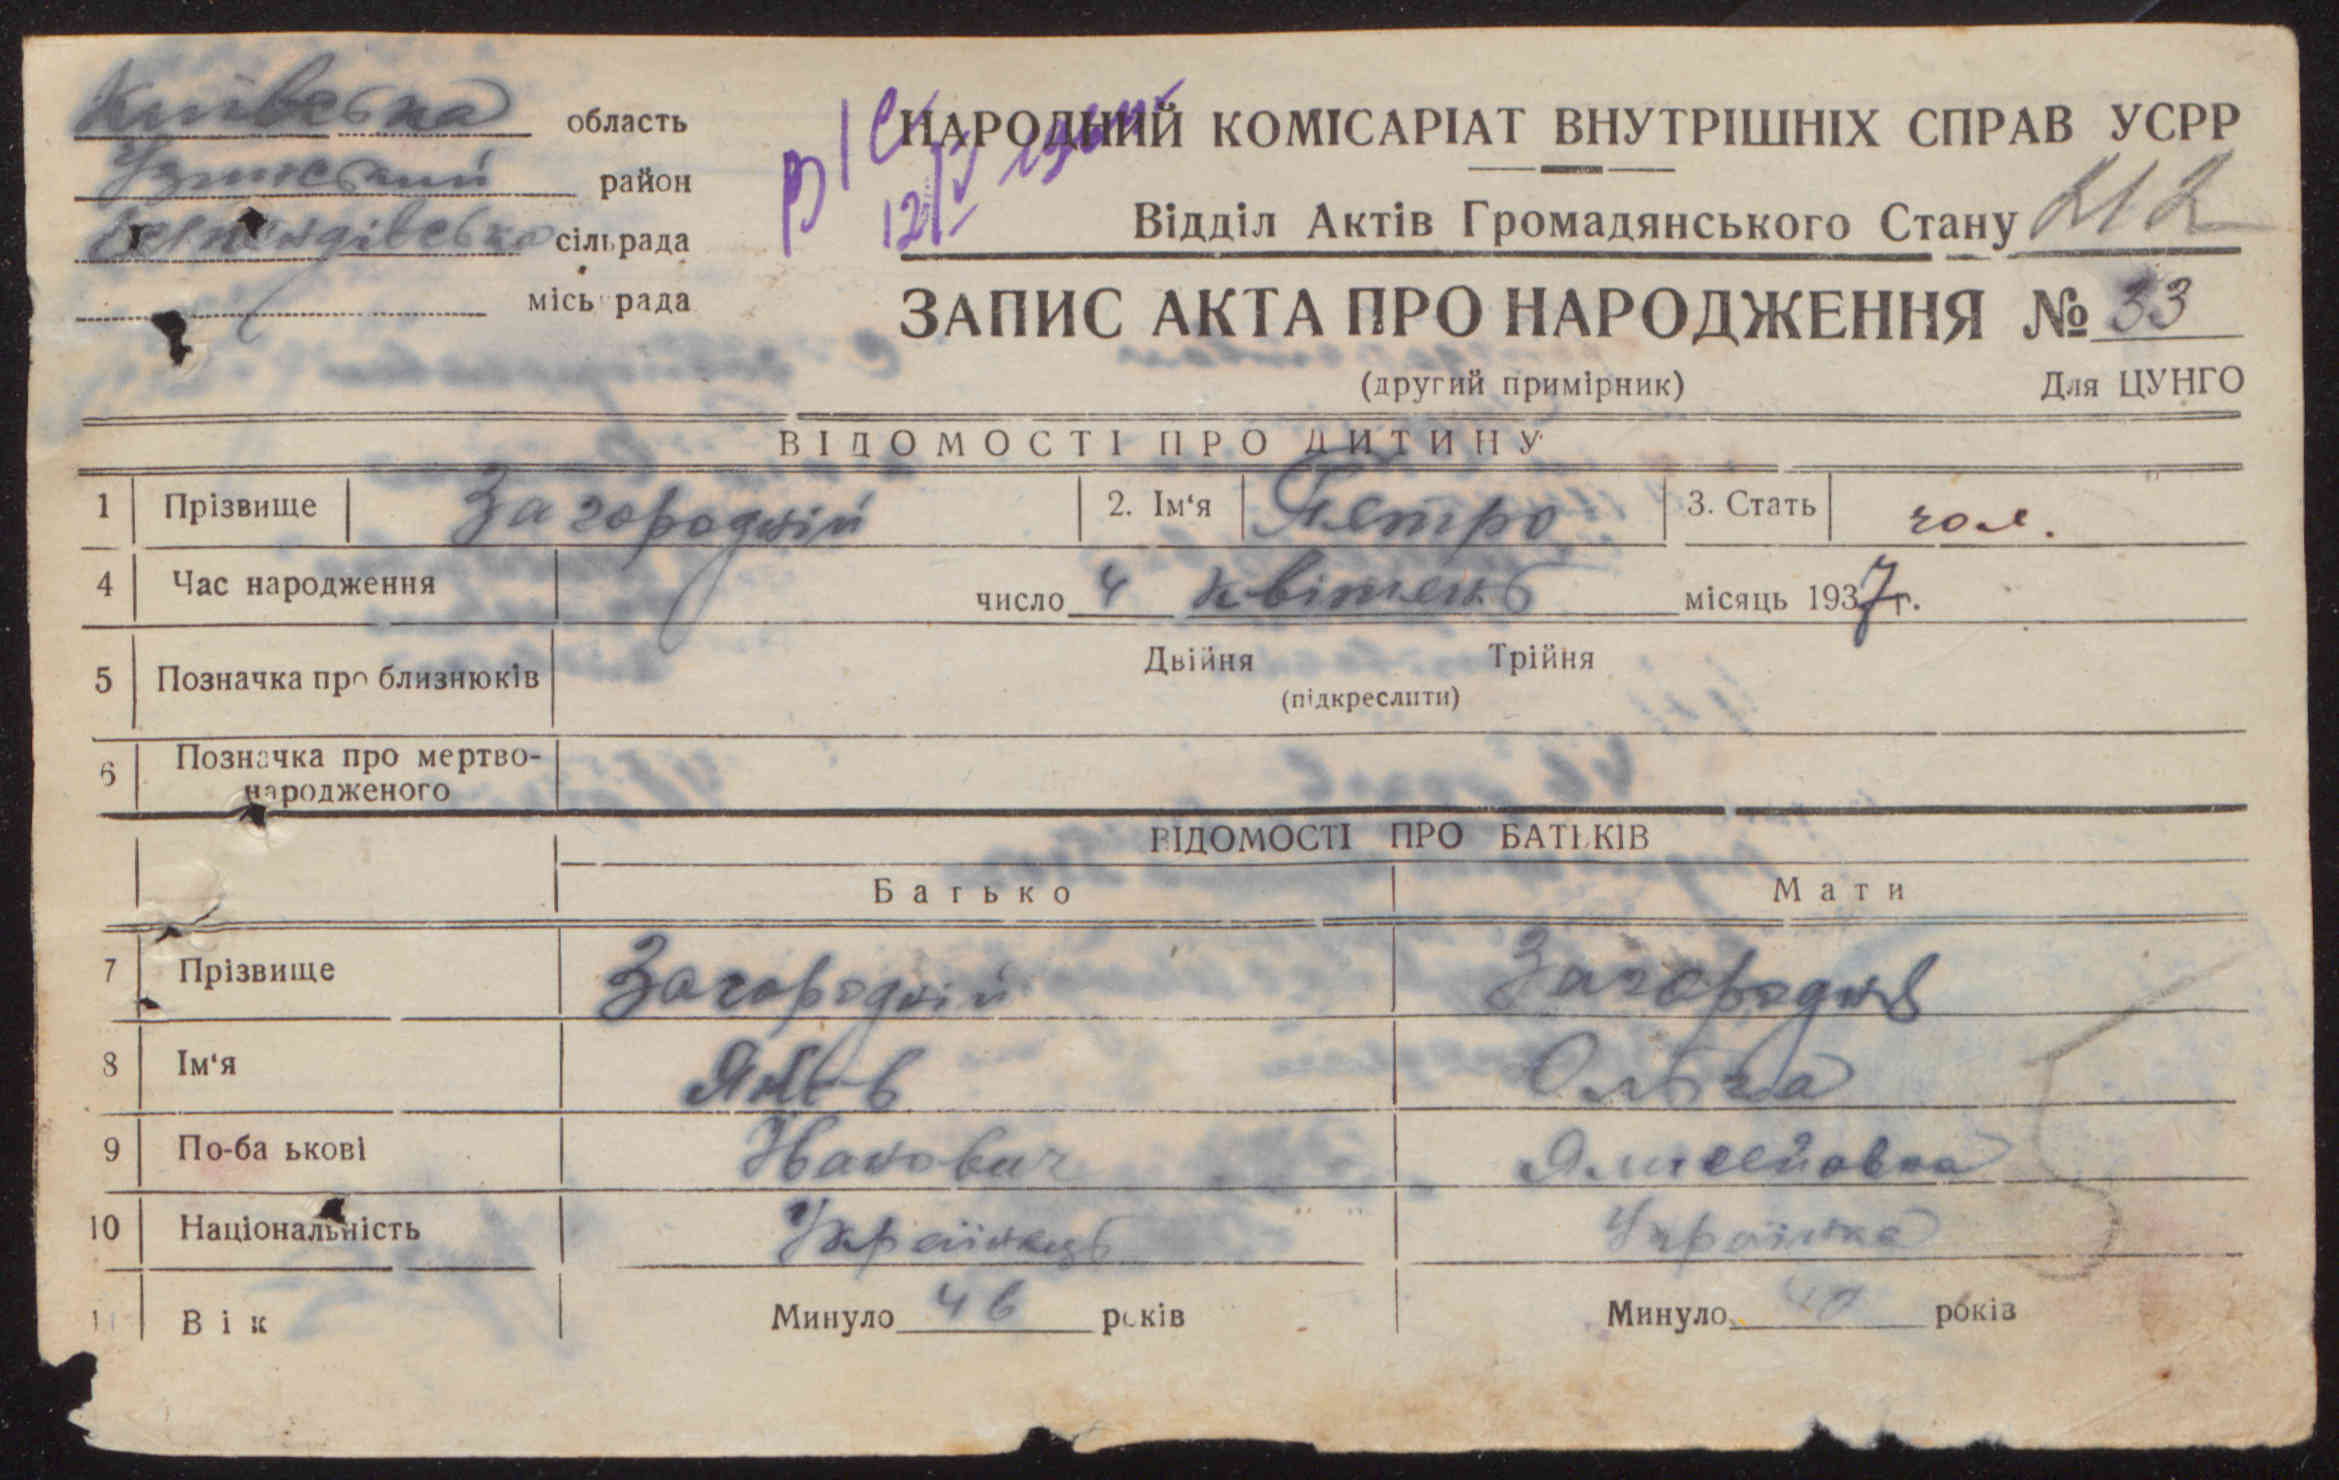 Київська область
Узинський район
сільрада
міськрада
НАРОДНИЙ КОМІСАРІАТ ВНУТРІШНІХ СПРАВ УСРР
Відділ Актів Громадянського Стану 212
ЗАПИС АКТА ПРО НАРОДЖЕННЯ № 33
(другий примірник) Для ЦУНГО
ВІДОМОСТІ ПРО ДИТИНУ
1 Прізвище Загородній 2. Ім'я Петро 3. Стать чол.
4 Час народження число 4 квітень місяць 1937 г.
5 Позначка про близнюків Двійня Трійня
(підкреслити)
6 Позначка про мертво-
народженого
ВІДОМОСТІ ПРО БАТЬКІВ
Батько Мати
7 Прізвище Загородній Загородня
8 Ім'я Яків Ольга
9 По-батькові Іванович
10 Національність Українець Українка
11 Вік Минуло 46 років Минуло років